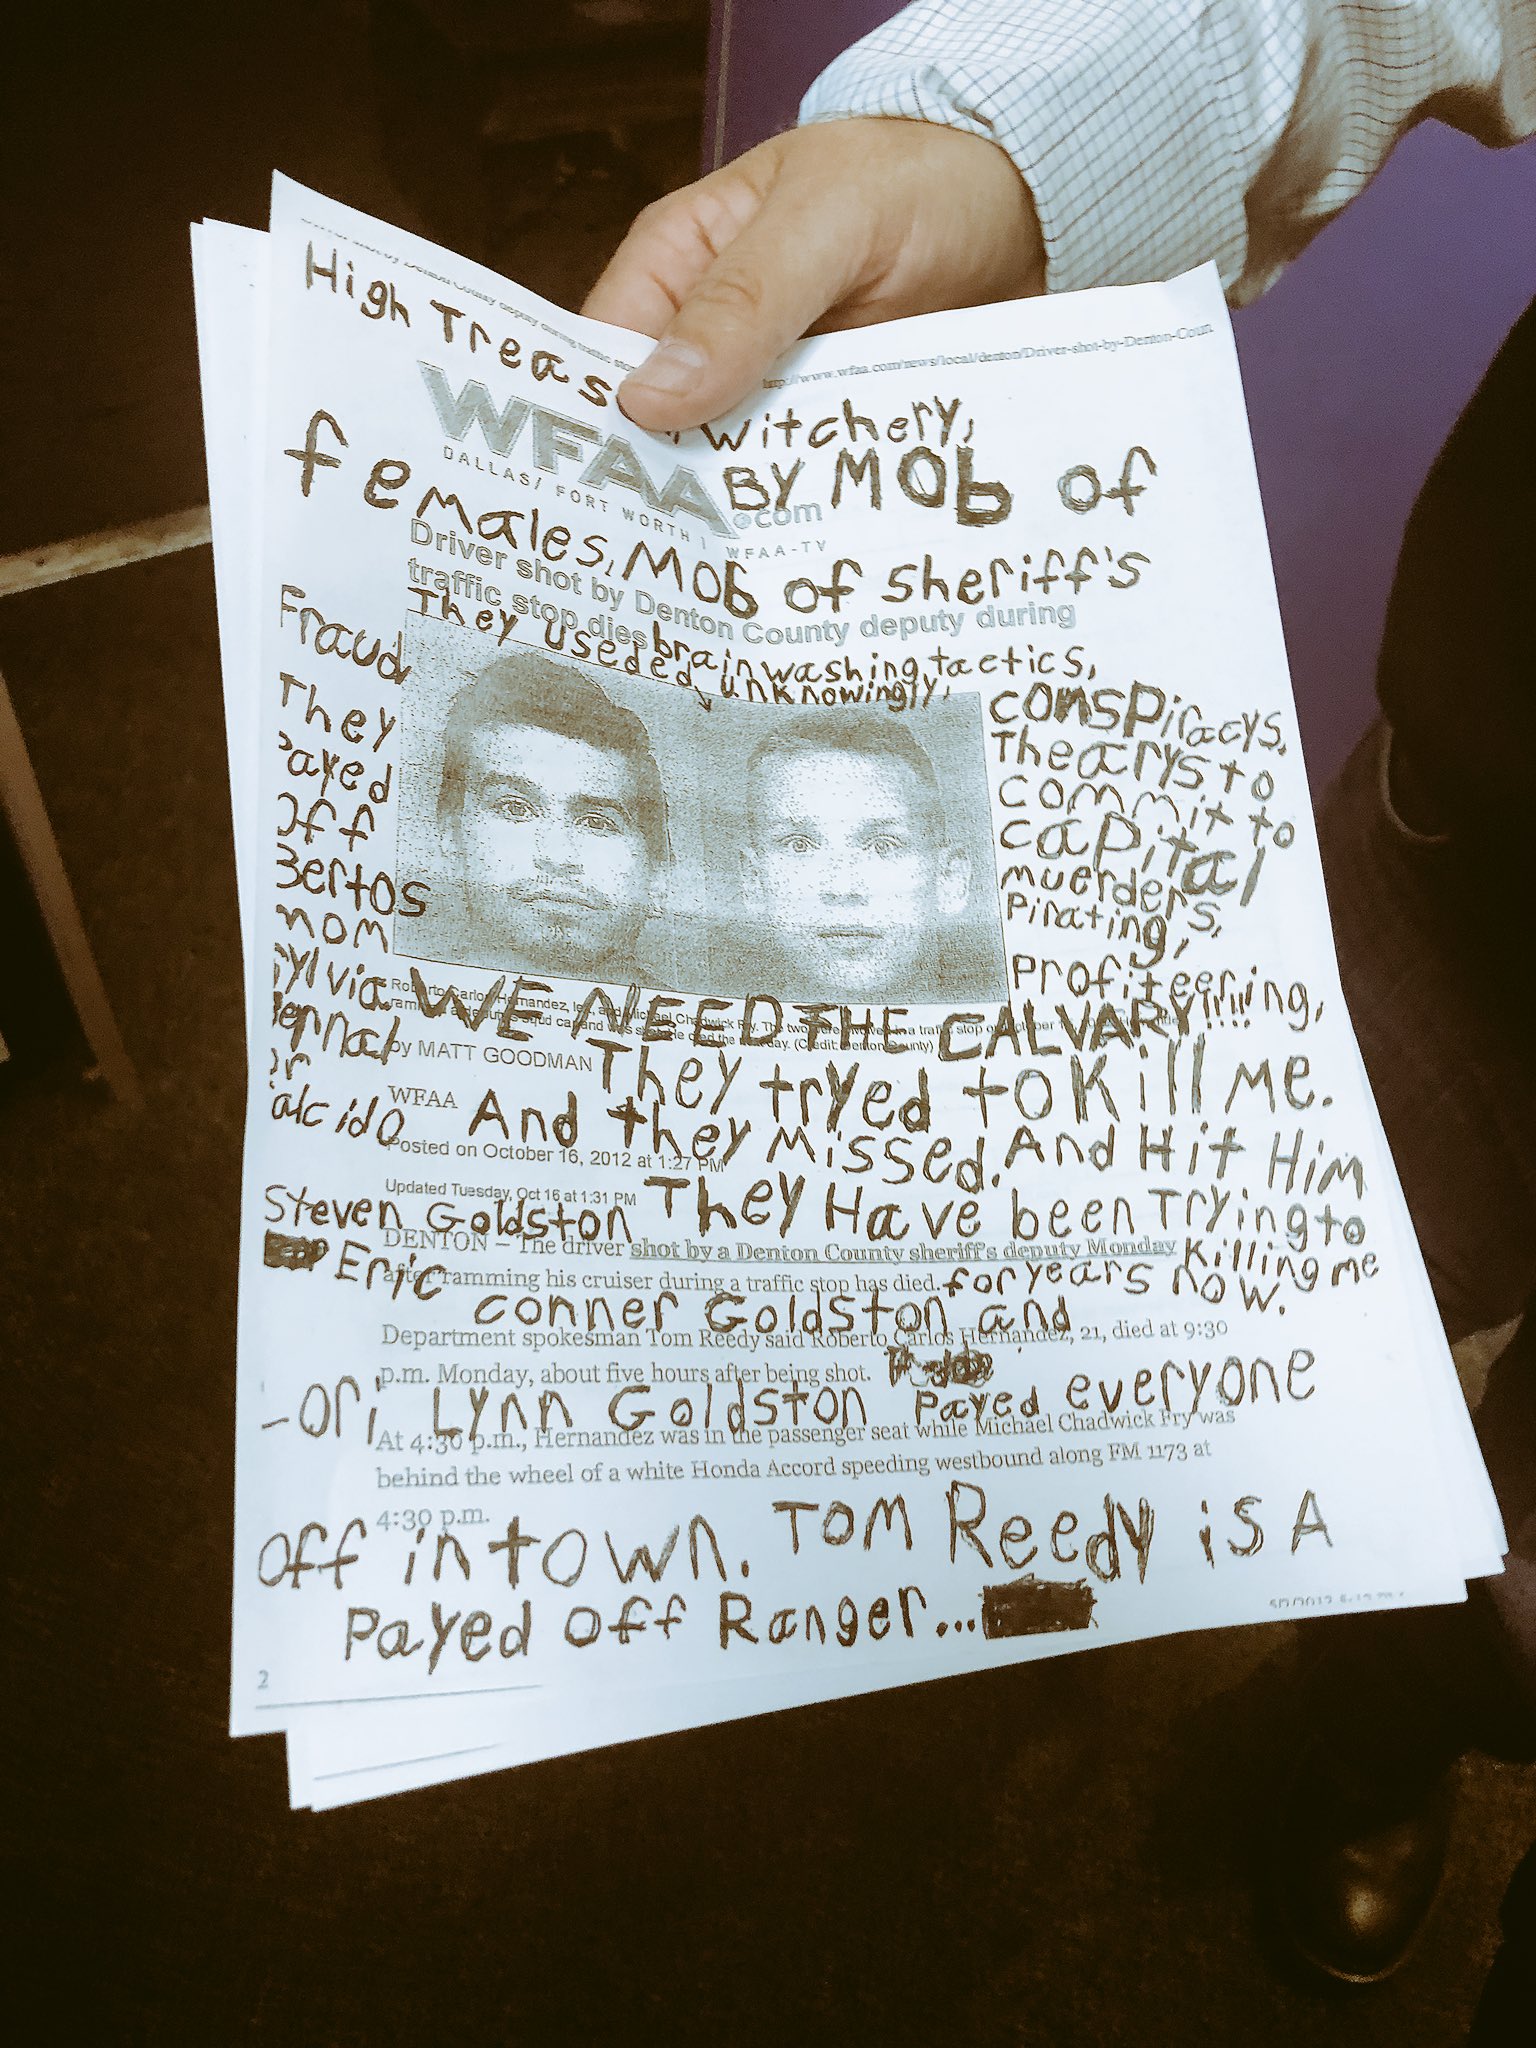 High Treas
witchery,
http://www.wfaa.com/news/local/denton/Driver-shot-by-Denton-Coun
WFAA.com
DALLAS/ FORT WORTH | WFAA-TV
BY MOb of
females, MOb of sheriff's
Driver shot by Denton County deputy during
traffic stop dies
They useded brainwashing tactics,
unknowingly,
Fraud
They
Payed
Off
Bertos
mom
Sylvia
Bernal
or
conspiracys,
Thearys to
commit to
capital
muerders,
Pirating,
Profiteering,
WE NEED THE CALVARY!!!!
by MATT GOODMAN
They tryed to Kill Me.
WFAA
And they Missed. And Hit Him
Posted on October 16, 2012 at 1:27 PM
Updated Tuesday, Oct 16 at 1:31 PM
Steven Goldston They Have been Trying to
Killing me
for years now.
DENTON – The driver shot by a Denton County sheriff's deputy Monday
after ramming his cruiser during a traffic stop has died.
Eric conner Goldston and
Department spokesman Tom Reedy said Roberto Carlos Hernandez, 21, died at 9:30
p.m. Monday, about five hours after being shot.
Lynn Goldston Payed everyone
At 4:30 p.m., Hernandez was in the passenger seat while Michael Chadwick Fry was
behind the wheel of a white Honda Accord speeding westbound along FM 1173 at
4:30 p.m.
off in town. Tom Reedy is A
Payed Off Ranger...
2